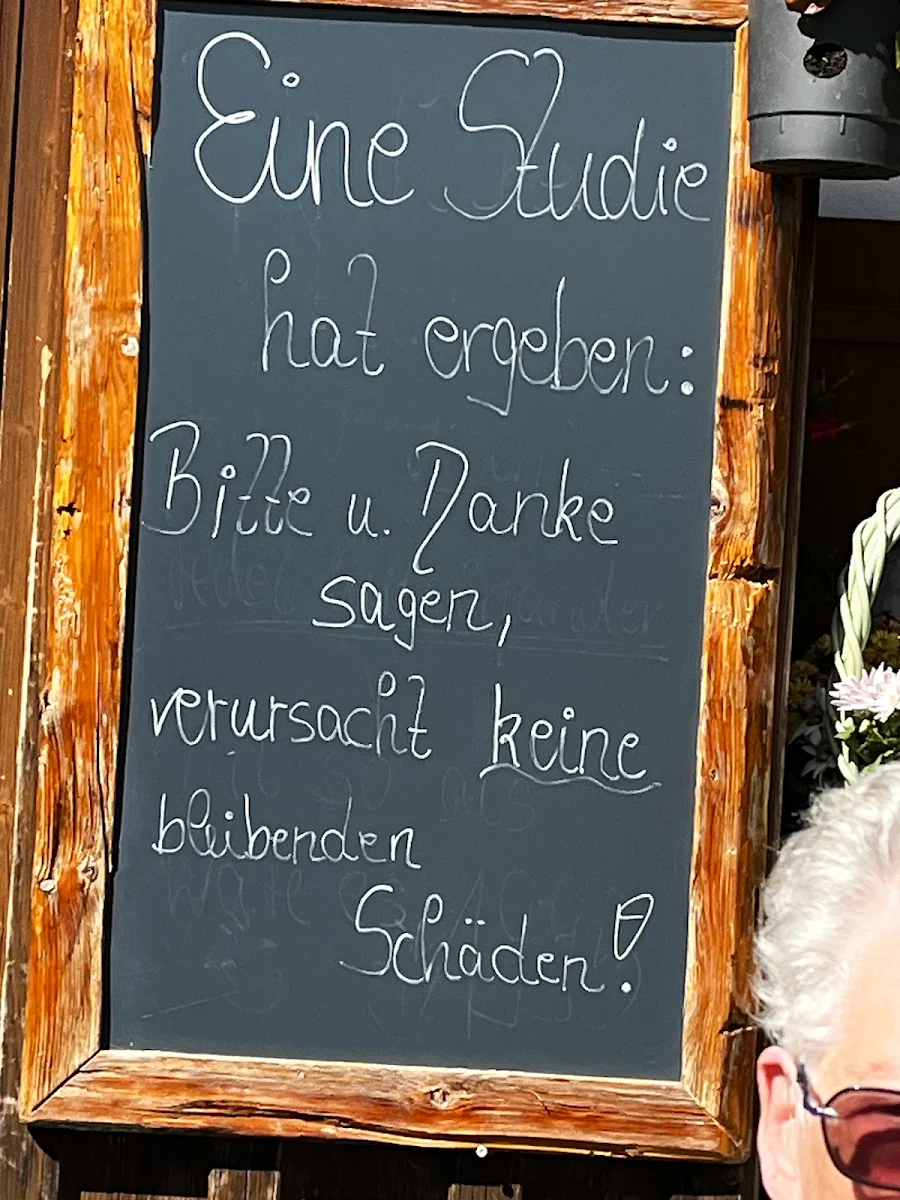 Eine Studie
hat ergeben:
Bitte u. Danke
sagen,
verursacht keine
bleibenden
Schäden!